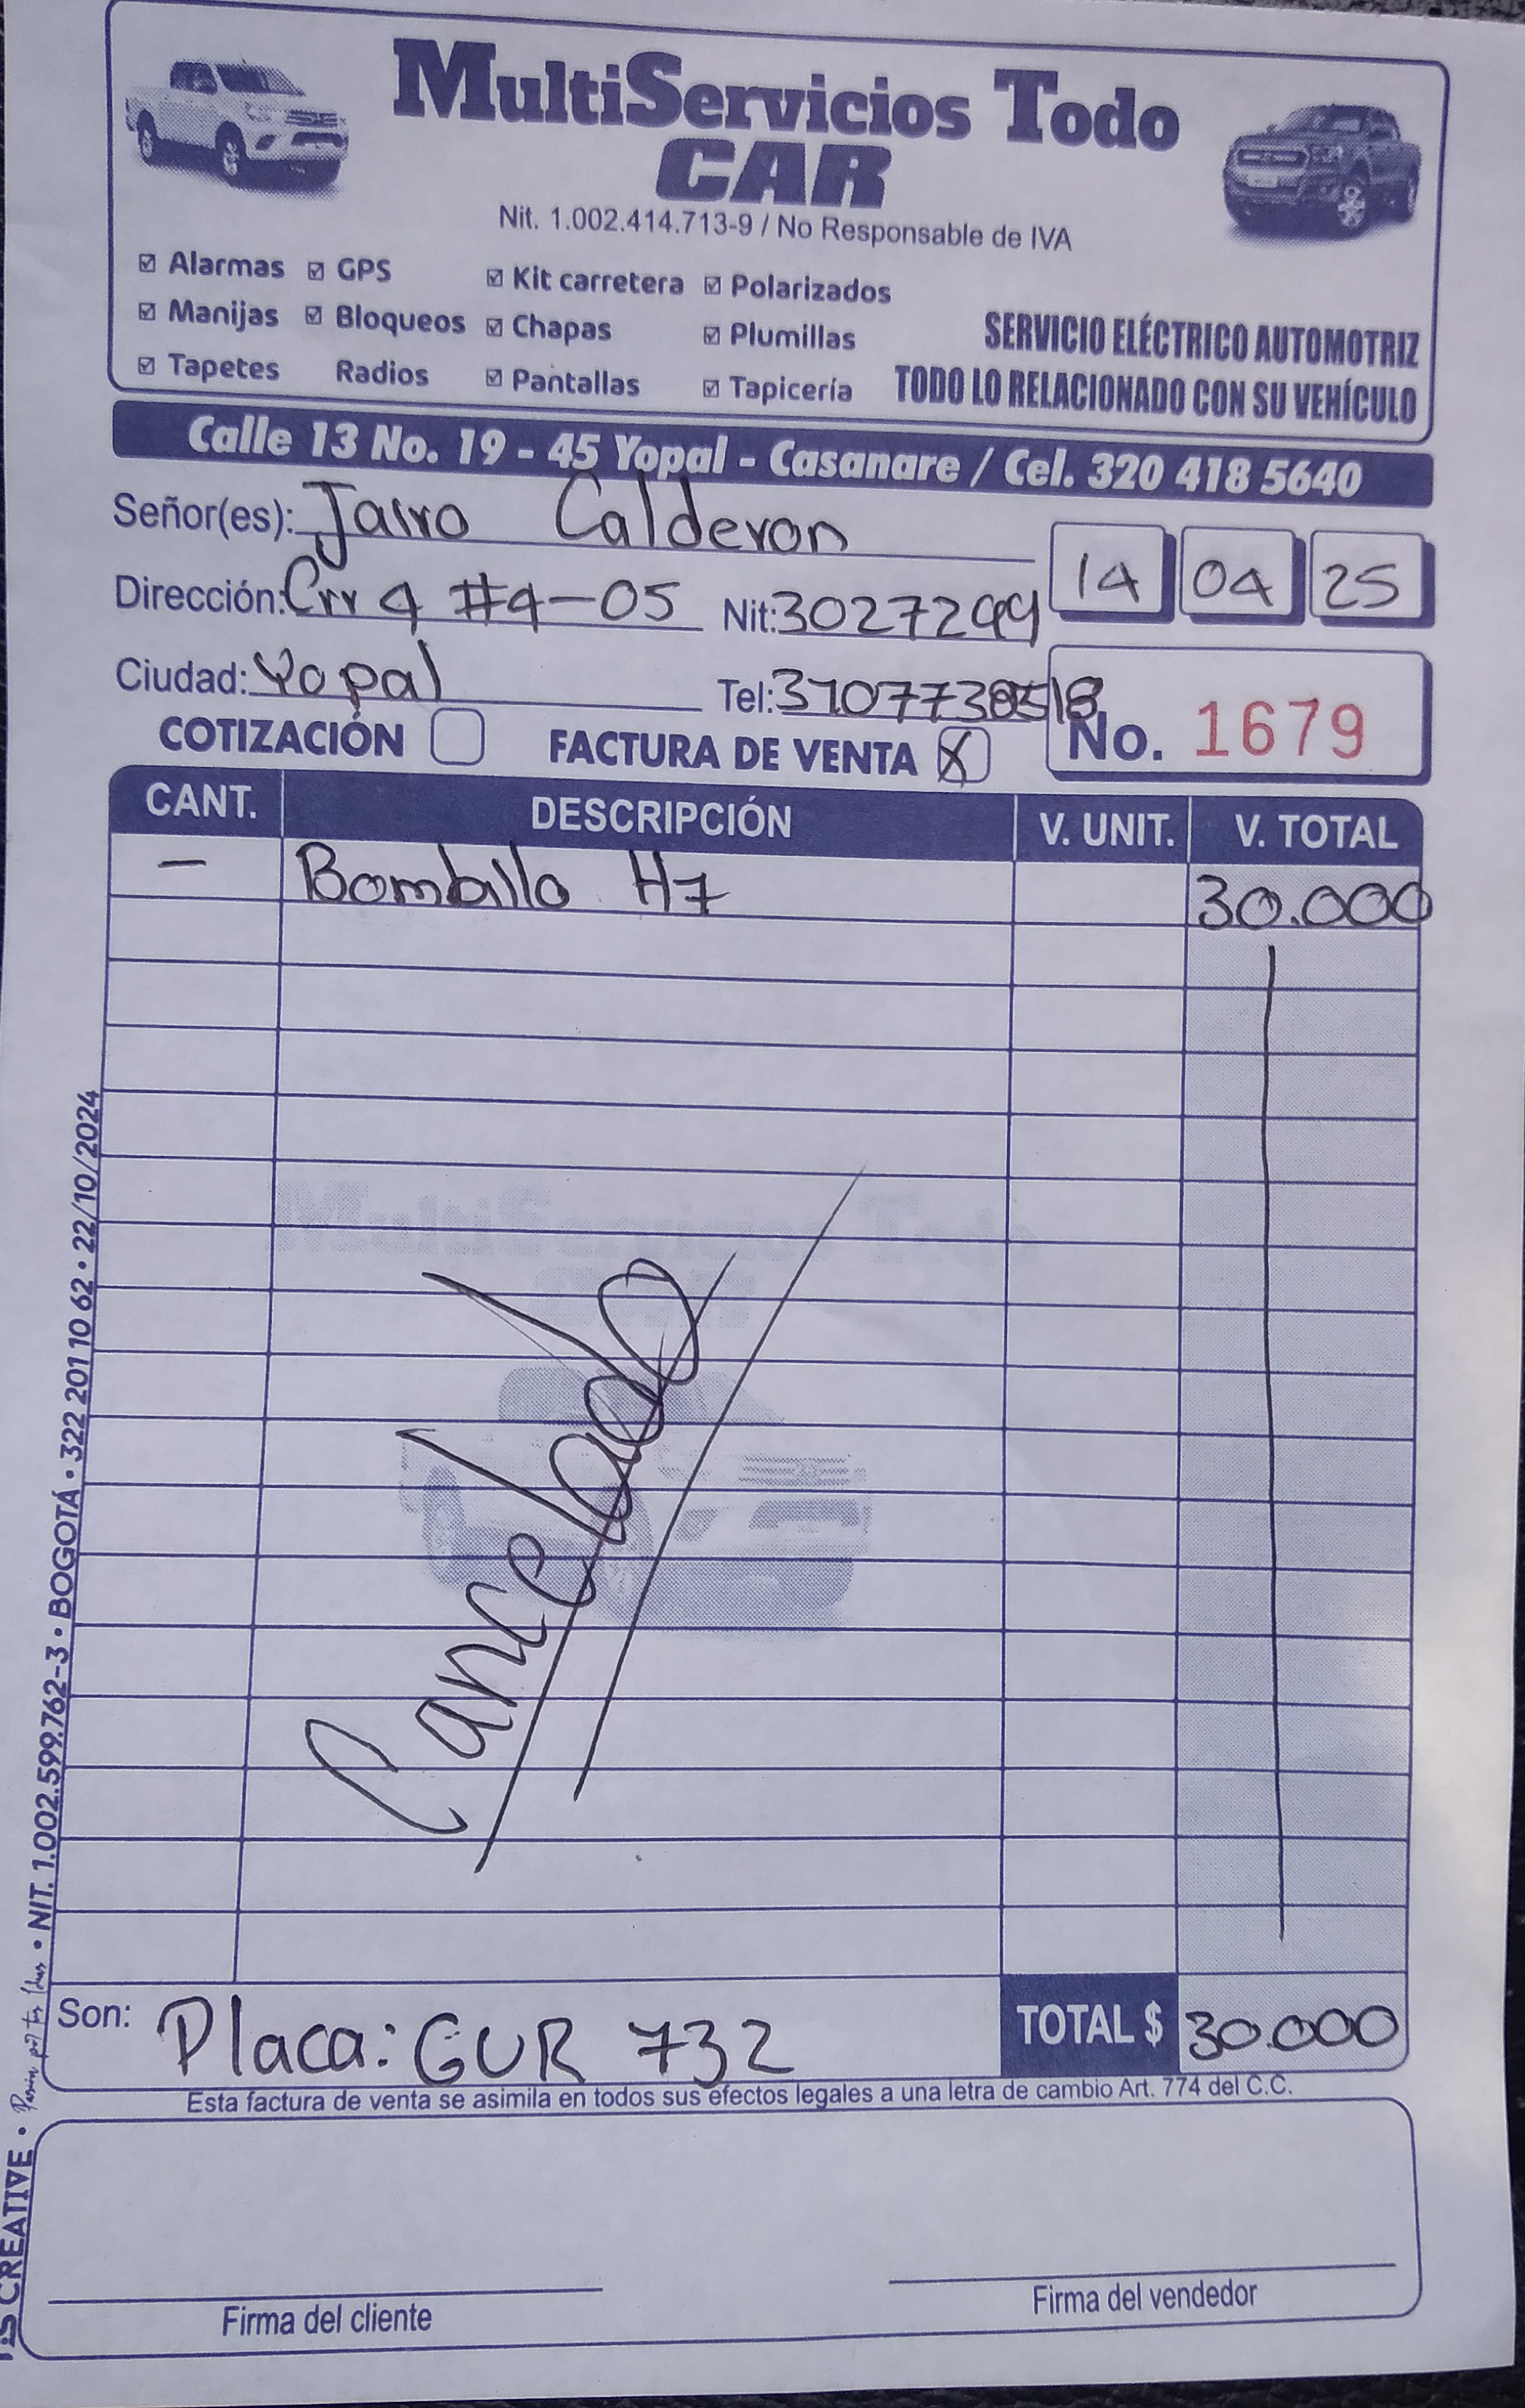 MultiServicios Todo
CAR
Nit. 1.002.414.713-9 / No Responsable de IVA
Alarmas GPS Kit carretera Polarizados
Manijas Bloqueos Chapas Plumillas
Tapetes Radios Pantallas Tapicería
SERVICIO ELÉCTRICO AUTOMOTRIZ
TODO LO RELACIONADO CON SU VEHÍCULO
Calle 13 No. 19 - 45 Yopal - Casanare / Cel. 320 418 5640
Señor(es): Jairo Calderon
14 04 25
Dirección: Crr 9 #9-05 Nit: 3027299
Ciudad: Yopal Tel:
COTIZACIÓN FACTURA DE VENTA X No. 1679
CANT. DESCRIPCIÓN V. UNIT. V. TOTAL
— Bombillo H7 30.000
MultiServicios Todo
CAR
Cancelado
Son: Placa: GUR 732 TOTAL $ 30.000
Esta factura de venta se asimila en todos sus efectos legales a una letra de cambio Art. 774 del C.C.
Firma del cliente Firma del vendedor
CREATIVE • NIT. 1.002.599.762-3 • BOGOTÁ • 322 201 10 62 • 22/10/2024